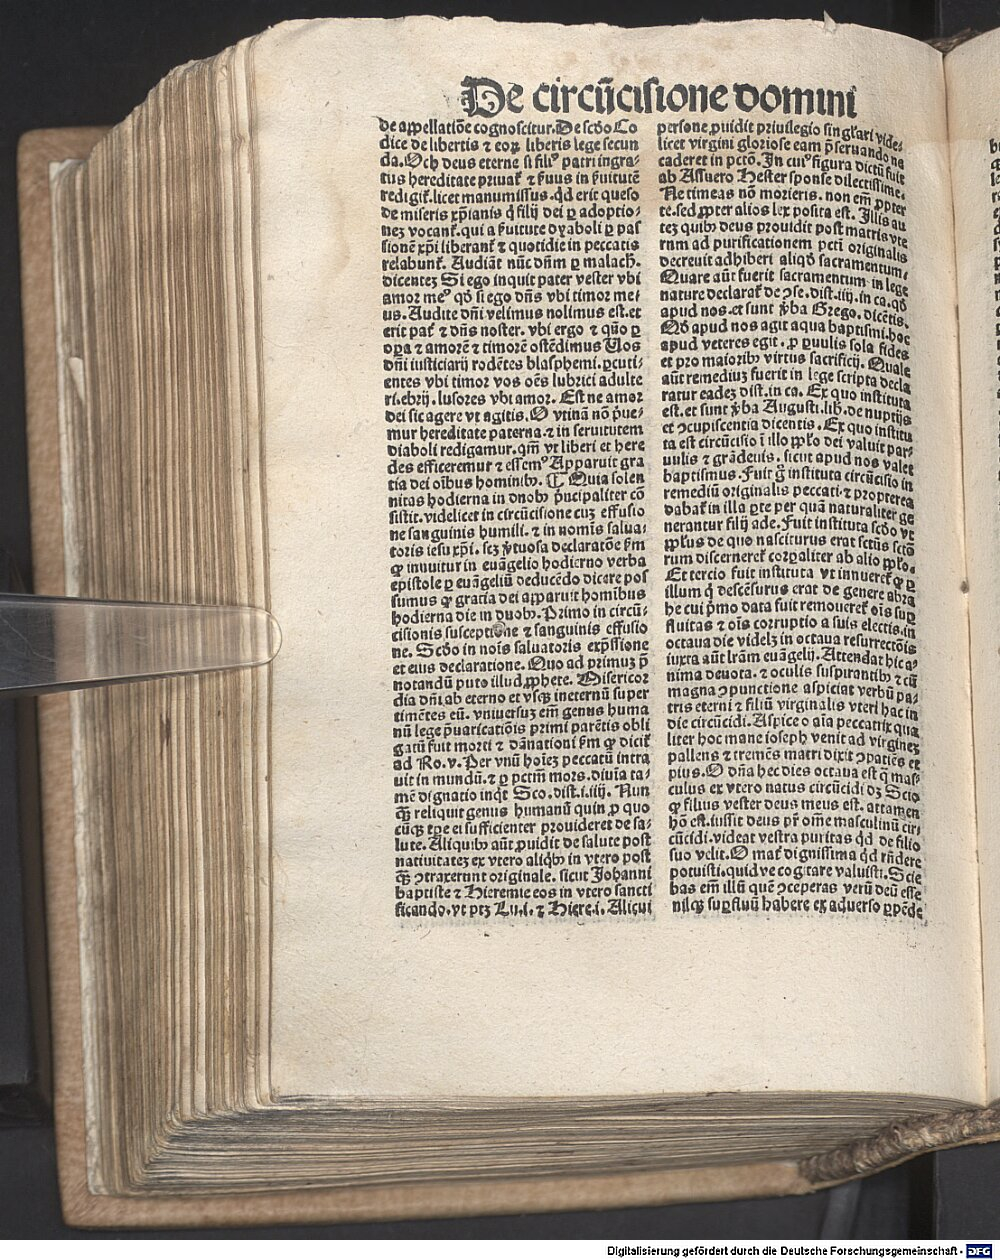 De circūcisione domini
de appellatiōe cognoscitur. De scḋo Co
dice de libertis ⁊ eoꝝ liberis lege secun
da. Och deus eterne si filiꝰ patri ingra⸗
tus hereditate priuat᷑ ⁊ ẜuus in ẜuitutē
redigit᷑. licet manumissus. qd erit queso
de miseris xp̄ianis q̇ filij dei ꝑ adoptio⸗
nez vocant᷑. qui a ẜuitute dyaboli ꝑ pas
sionē xp̄i liberant᷑ ⁊ quotidie in peccatis
relabunt᷑. Audiāt nūc dn̄m ꝑ malach̄.
dicentez Si ego inquit pater vester vbi
amor meꝰ qḋ si ego dn̄s vbi timor me⸗
us. Audite dn̄i velimus nolimus est. et
erit pat᷑ ⁊ dn̄s noster. vbi ergo ⁊ quō ꝑ
oꝑa ⁊ amorē ⁊ timorē ostēdimus Uos
dn̄i iusticiarij rodētes blasphemi. ꝑcuti⸗
entes vbi timor vos oēs lubrici adulte
ri. ebrij. lusores vbi amor. Est ne amor
dei sic agere vt agitis. O vtinā nō p̄ue⸗
mur hereditate paterna. ⁊ in seruitutem
diaboli redigamur. qm̄ vt liberi et here
des efficeremur ⁊ essemꝰ Apparuit gra
tia dei oībus hominibꝫ. ¶ Quia solen
nitas hodierna in duobꝫ p̄ncipaliter cō
sistit. videlicet in circūcisione cuꝫ effusio
ne sanguinis humili. ⁊ in nomīs salua⸗
toris iesu xp̄i. scꝫ v̄tuosa declaratōe ẜm
ꝙ innuitur in euāgelio hodierno verba
epistole ꝑ euāgeliū deducēdo dicere pos
sumus ꝙ gratia dei apparuit homībus
hodierna die in duobꝫ. Primo in circū⸗
cisionis susceptione ⁊ sanguinis effusio
ne. Scḋo in noīs saluatoris exp̄ssione
et eius declaratione. Quo ad primuꝫ p̄
notandū puto illud ꝓphete. Misericor
dia dn̄i ab eterno et vsqꝫ ineternū super
timētes eū. vniuersuꝫ em̄ genus huma
nū lege p̄uaricatiōis primi parētis obli
gatū fuit morti ⁊ dānationi ẜm ꝙ dicit᷑
ad Ro. v. Per vnū hoīeꝫ peccatū intra
uit in mundū. ⁊ ꝑ pctm̄ mors. diuīa ta⸗
mē dignatio inq̇t Sco. dist. i. iiij. Nun
qꝫ̄ reliquit genus humanū quin ꝓ quo
cūqꝫ tꝑe ei sufficienter prouideret de sa⸗
lute. Aliquibꝫ aūt ꝓuidit de salute post
natiuitateꝫ ex vtero aliqḃꝫ in vtero post
qꝫ̄ ꝯtraxerunt originale. sicut Johanni
baptiste ⁊ Hieremie eos in vtero sancti
ficando. vt ptꝫ Lu. i. ⁊ Hiere. i. Aliqui
persone ꝓuidit priuilegio singl̓ari vide⸗
licet virgini gloriose eam p̄seruando ne
caderet in pctō. In cuiꝰ figura dictū fuit
ab Assuero Hester sponse dilectissime.
Ne timeas nō morieris. non em̄ ꝓpter
te. sed ꝓpter alios lex posita est. Illis au
teꝫ quibꝫ deus prouidit post matris vte
rum ad purificationem pcti originalis
decreuit adhiberi aliqḋ sacramentum.
Quare aūt fuerit sacramentum in lege
nature declarat᷑ de ꝯse. dist. iiij. in ca. qḋ
apud nos. et sunt v̄ba Grego. dicētis.
Qḋ apud nos agit aqua baptismi. hoc
apud veteres egit. ꝓ ꝑuulis sola fides
et pro maioribꝫ virtus sacrificij. Quale
aūt remediuꝫ fuerit in lege scripta decla
ratur eadeꝫ dist. in ca. Ex quo instituta
est. et sunt v̄ba Augusti. lib. de nuptijs
et ꝯcupiscentia dicentis. Ex quo institu
ta est circūcisio ī illo ppl̓o dei valuit par
uulis ⁊ grādeuis. sicut apud nos valet
baptismus. Fuit g̊ instituta circūcisio in
remediū originalis peccati. ⁊ propterea
dabat᷑ in illa ꝑte per quā naturaliter ge
nerantur filij ade. Fuit instituta scḋo vt
ppl̓us de quo nasciturus erat sctūs sctō
rum discerneret᷑ corꝑaliter ab alio ppl̓o.
Et tercio fuit instituta vt innueret᷑ ꝙ ꝑ
illum q̇ descēsurus erat de genere abra
he cui p̄mo data fuit remoueret᷑ oīs suꝑ
fluitas ⁊ oīs corruptio a suis electis. in
octaua die videlꝫ in octaua resurrectōis
iuxta aūt lr̄am euāgelij. Attendat hic a⸗
nima deuota. ⁊ oculis suspirantibꝫ ⁊ cū
magna ꝯpunctione aspiciat verbū pa⸗
tris eterni ⁊ filiū virginalis vteri hac in
die circūcidi. Aspice o aīa peccatrix qua
liter hoc mane ioseph venit ad virgineꝫ
pallens ⁊ tremēs matri dixit ꝯpatiēs et
pius. O dn̄a hec dies octaua est q̇ mas⸗
culus ex vtero natus circūcidi dꝫ Scio
ꝙ filius vester deus meus est. attamen
hō est. iussit deus pr̄ ome masculinū cir⸗
cūcidi. videat vestra puritas qd de filio
suo velit. O mat᷑ dignissima qd rn̄dere
potuisti. quid ve cogitare valuisti. Scie
bas em̄ illū quē ꝯceperas verū deū esse
nilqꝫ suꝑfluū habere ex aduerso ꝑpēde
Digitalisierung gefördert durch die Deutsche Forschungsgemeinschaft - DFG